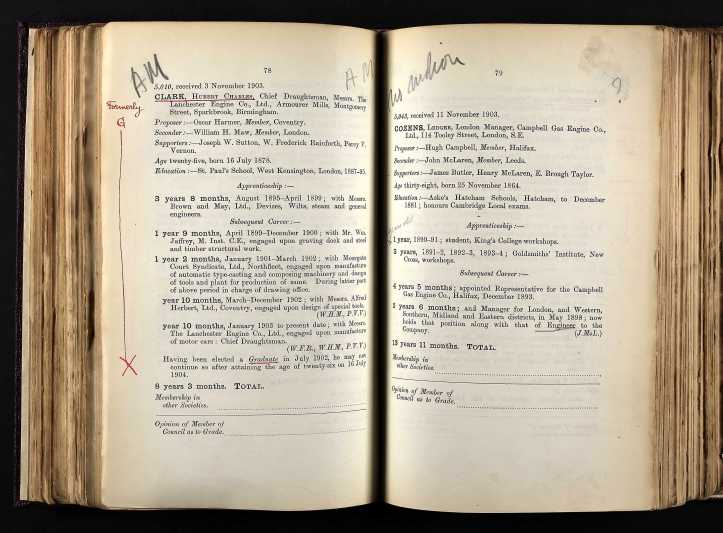 AM
78
AM
5,010, received 3 November 1903.
CLARK, HUBERT CHARLES, Chief Draughtsman, Messrs. The
Lanchester Engine Co., Ltd., Armourer Mills, Montgomery
Street, Sparkbrook, Birmingham.
Formerly
G
Proposer:—Oscar Harmer, Member, Coventry.
Seconder:—William H. Maw, Member, London.
Supporters:—Joseph W. Sutton, W. Frederick Rainforth, Percy F.
Vernon.
Age twenty-five, born 16 July 1878.
Education:—St. Paul's School, West Kensington, London, 1887-95.
Apprenticeship:—
3 years 8 months, August 1895-April 1899; with Messrs.
Brown and May, Ltd., Devizes, Wilts, steam and general
engineers.
Subsequent Career:—
1 year 9 months, April 1899-December 1900; with Mr. Wm.
Jaffrey, M. Inst. C.E., engaged upon graving dock and steel
and timber structural work.
1 year 2 months, January 1901-March 1902; with Moorgate
Court Syndicate, Ltd., Northfleet, engaged upon manufacture
of automatic type-casting and composing machinery and design
of tools and plant for production of same. During latter part
of above period in charge of drawing office.
year 10 months, March-December 1902; with Messrs. Alfred
Herbert, Ltd., Coventry, engaged upon design of special tools.
(W.H.M., P.V.V.)
year 10 months, January 1903 to present date; with Messrs.
The Lanchester Engine Co., Ltd., engaged upon manufacture
of motor cars: Chief Draughtsman.
(W.F.R., W.H.M., P.V.V.)
Having been elected a Graduate in July 1902, he may not
continue so after attaining the age of twenty-six on 16 July
1904.
8 years 3 months. TOTAL.
Membership in
other Societies.
Opinion of Member of
Council as to Grade.
79
5,045, received 11 November 1903.
COZENS, London Manager, Campbell Gas Engine Co.,
Ltd., 114 Tooley Street, London, S.E.
Proposer:—Hugh Campbell, Member, Halifax.
Seconder:—John McLaren, Member, Leeds.
Supporters:—James Butler, Henry McLaren, E. Brough Taylor.
Age thirty-eight, born 25 November 1864.
Education:—Aske's Hatcham Schools, Hatcham, to December
1881; honours Cambridge Local exams.
Apprenticeship:—
1 year, 1890-91; student, King's College workshops.
3 years, 1891-2, 1892-3, 1893-4; Goldsmiths' Institute, New
Cross, workshops.
Subsequent Career:—
4 years 5 months; appointed Representative for the Campbell
Gas Engine Co., Halifax, December 1893.
5 years 6 months; and Manager for London, and Western,
Southern, Midland and Eastern districts, in May 1898; now
holds that position along with that of Engineer to the
Company.
(J.McL.)
13 years 11 months. TOTAL.
Membership in
other Societies
Opinion of Member of
Council as to Grade.